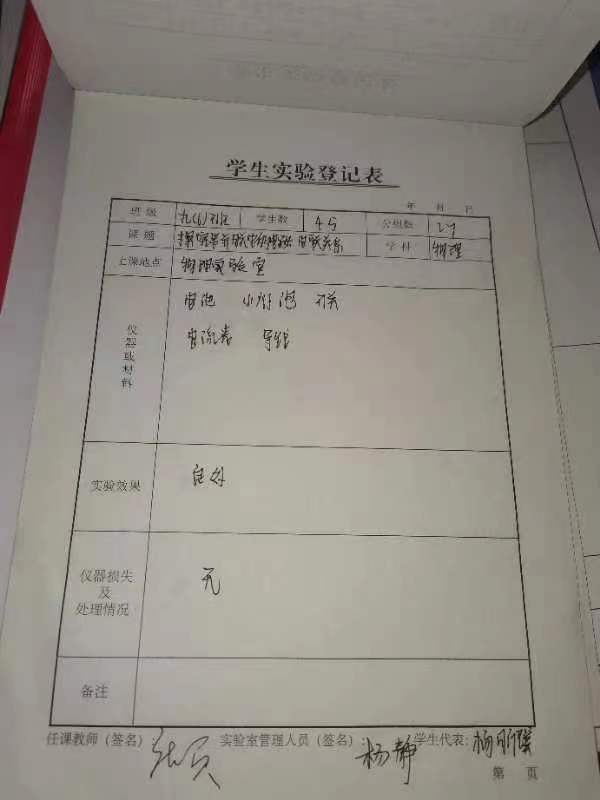 学生实验登记表
年 月 日
班级 九(1)班 学生数 45 分组数
课题 探究串并联电路中电流规律
学科 物理
上课地点 物理实验室
仪器或材料
电池 小灯泡 开关
电流表 导线
实验效果 良好
仪器损失及处理情况 无
备注
任课教师（签名） 实验室管理人员（签名）：杨静 学生代表：
第 页